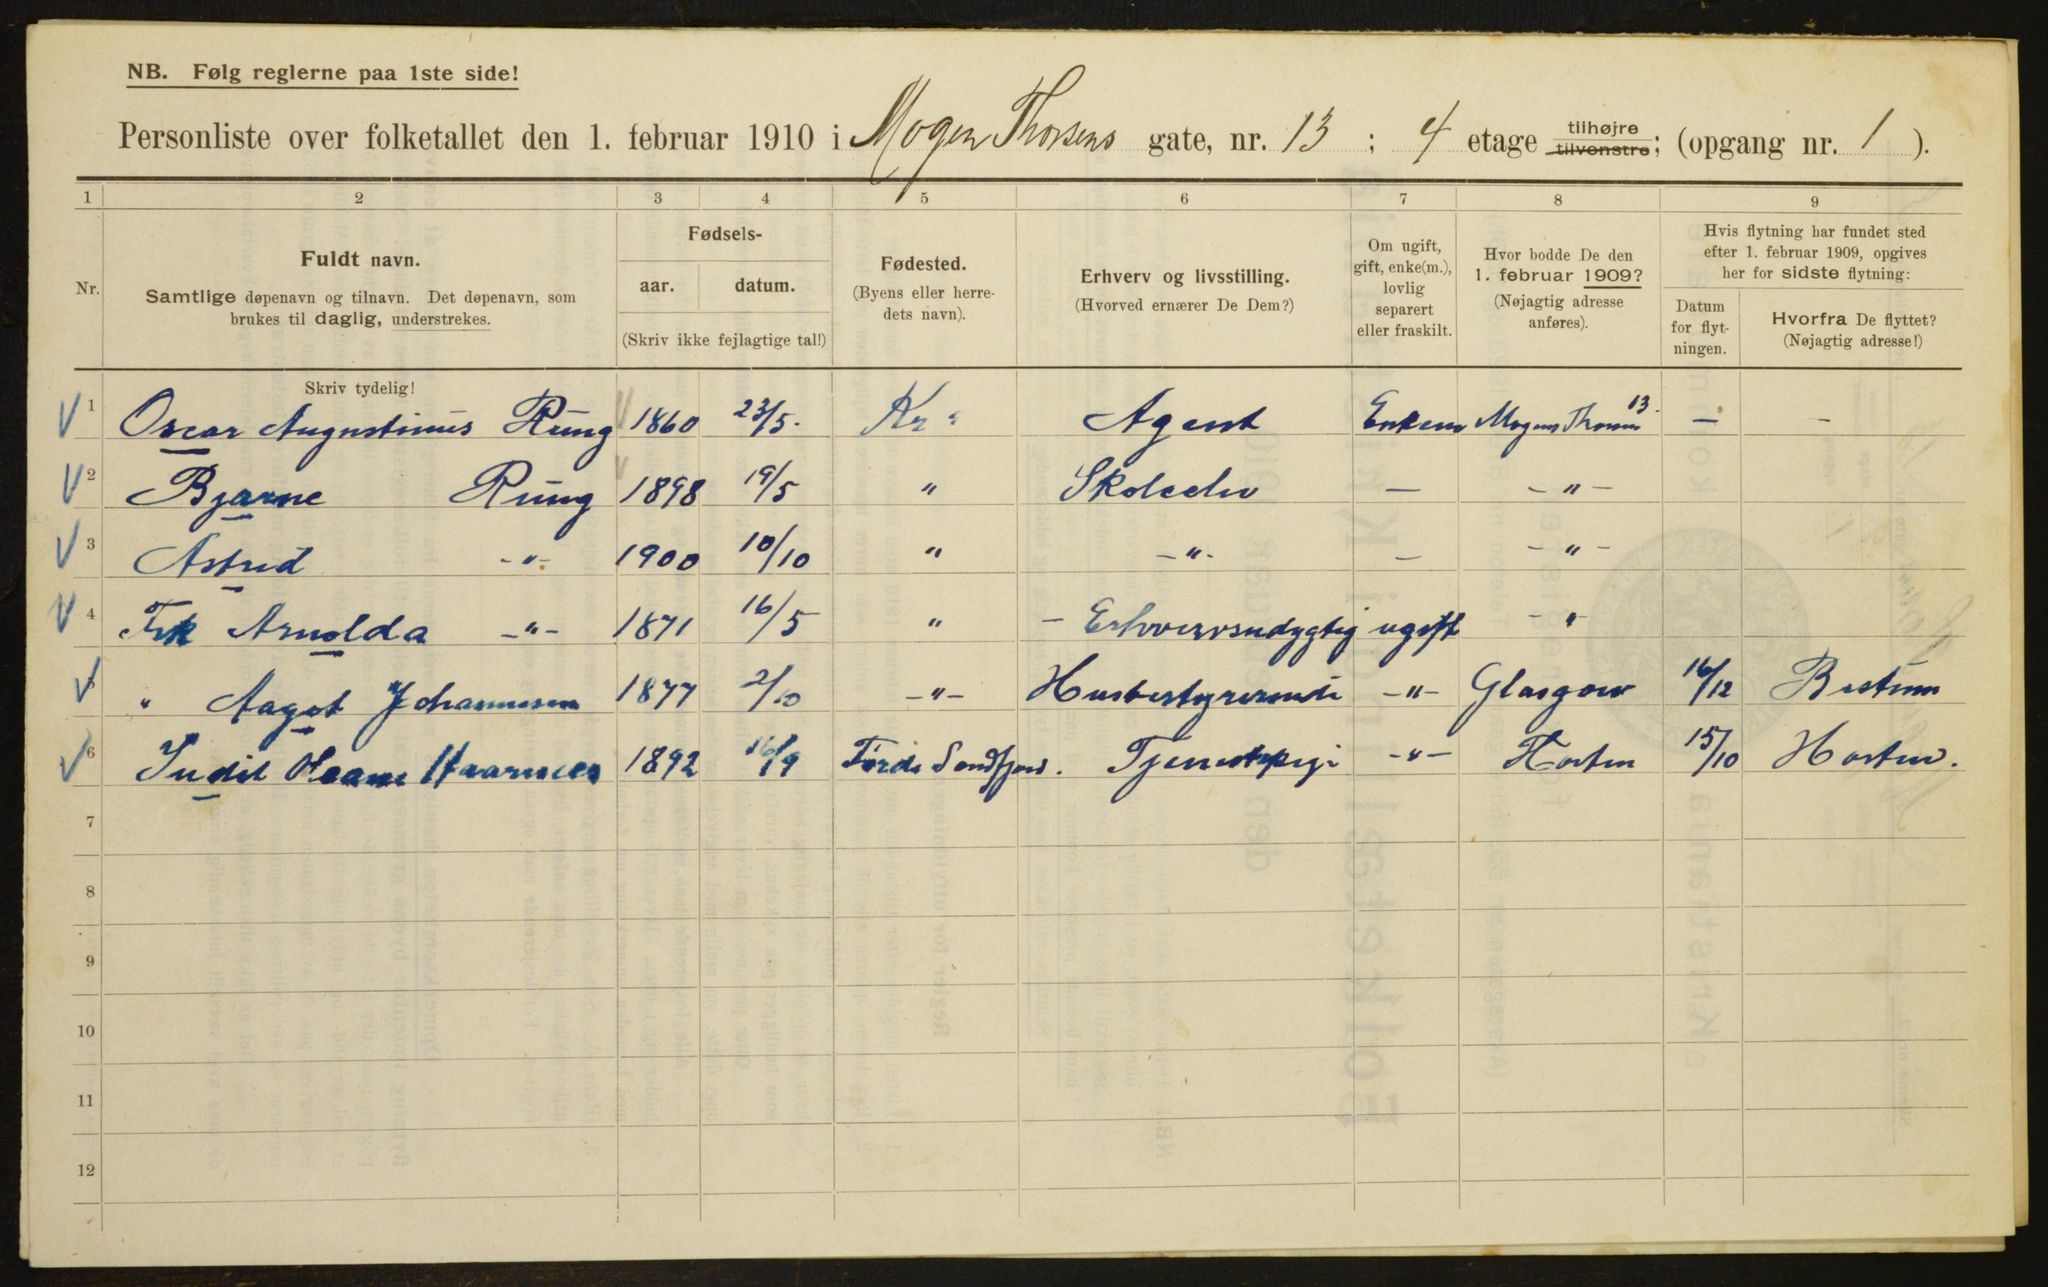 NB. Følg reglerne paa 1ste side!
Personliste over folketallet den 1. februar 1910 i Mogen Thorsens gate, nr. 13 ; 4 etage tilhøjre tilvenstre; (opgang nr. 1 ).
1 2 3 4 5 6 7 8 9
Nr.
Fuldt navn.
Samtlige døpenavn og tilnavn. Det døpenavn, som
brukes til daglig, understrekes.
Fødsels-
aar. datum.
(Skriv ikke fejlagtige tal!)
Fødested.
(Byens eller herre-
dets navn).
Erhverv og livsstilling.
(Hvorved ernærer De Dem?)
Om ugift,
gift, enke(m.),
lovlig
separert
eller fraskilt.
Hvor bodde De den
1. februar 1909?
(Nøjagtig adresse
anføres).
Hvis flytning har fundet sted
efter 1. februar 1909, opgives
her for sidste flytning:
Datum
for flyt-
ningen.
Hvorfra De flyttet?
(Nøjagtig adresse!)
Skriv tydelig!
1 Oscar Augustinus Rung 1860 23/5. Kr. Agent Enkem Mogens Thorsens 13. — —
2 Bjarne Rung 1898 19/5 " Skoleelev — -"-
3 Astrid -"- 1900 10/10 " -"- — -"-
4 Frk Arnolda -"- 1871 16/5 " - Erhvervsudygtig ugift -"
5 " Aagot Johannesen 1877 2/10 -"- Husbestyrerinde -"- Glasgow 16/12 Bestum
6 Judit Haarnes 1892 16/9 Førde Søndfjord. Tjenestepige -"- Horten 15/10 Horten.
7
8
9
10
11
12